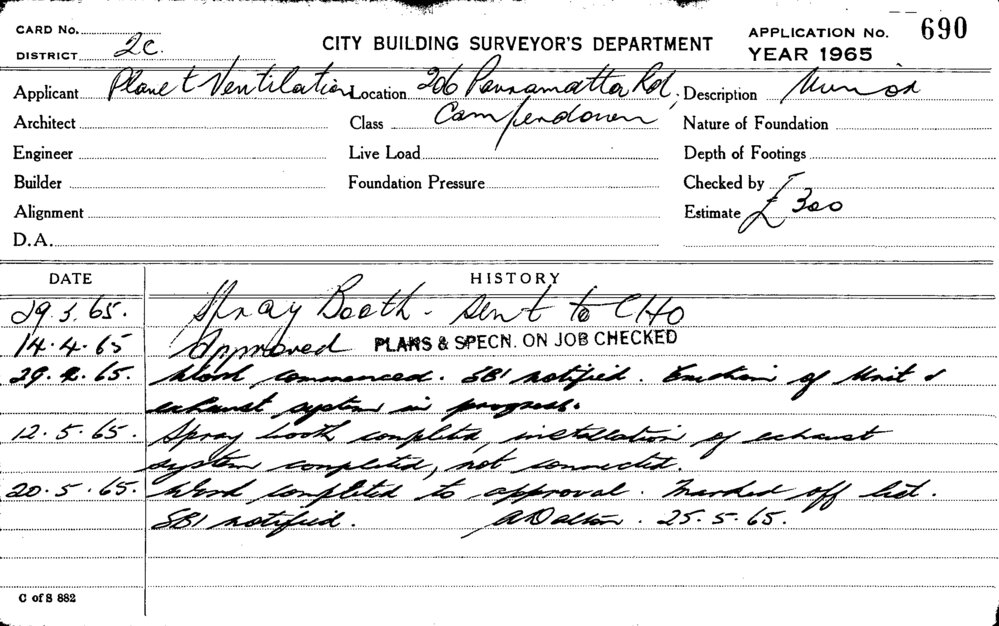 CARD No.
APPLICATION No. 690
DISTRICT 2C.
CITY BUILDING SURVEYOR'S DEPARTMENT
YEAR 1965
Applicant Planet Ventilation Location 206 Parramatta Rd, Description Minor
Architect Class Camperdown Nature of Foundation
Engineer Live Load Depth of Footings
Builder Foundation Pressure Checked by
Alignment Estimate £300
D.A.
DATE HISTORY
29.3.65. Spray Booth - sent to CHO
14.4.65 Approved PLANS & SPECN. ON JOB CHECKED
29.4.65. Work commenced. SBI notified. Erection of Unit &
exhaust system in progress.
12.5.65. Spray booth completed, installation of exhaust
system completed, not connected.
20.5.65. Work completed to approval. Marked off list.
SBI notified. A Dalton. 25.5.65.
C of S 882